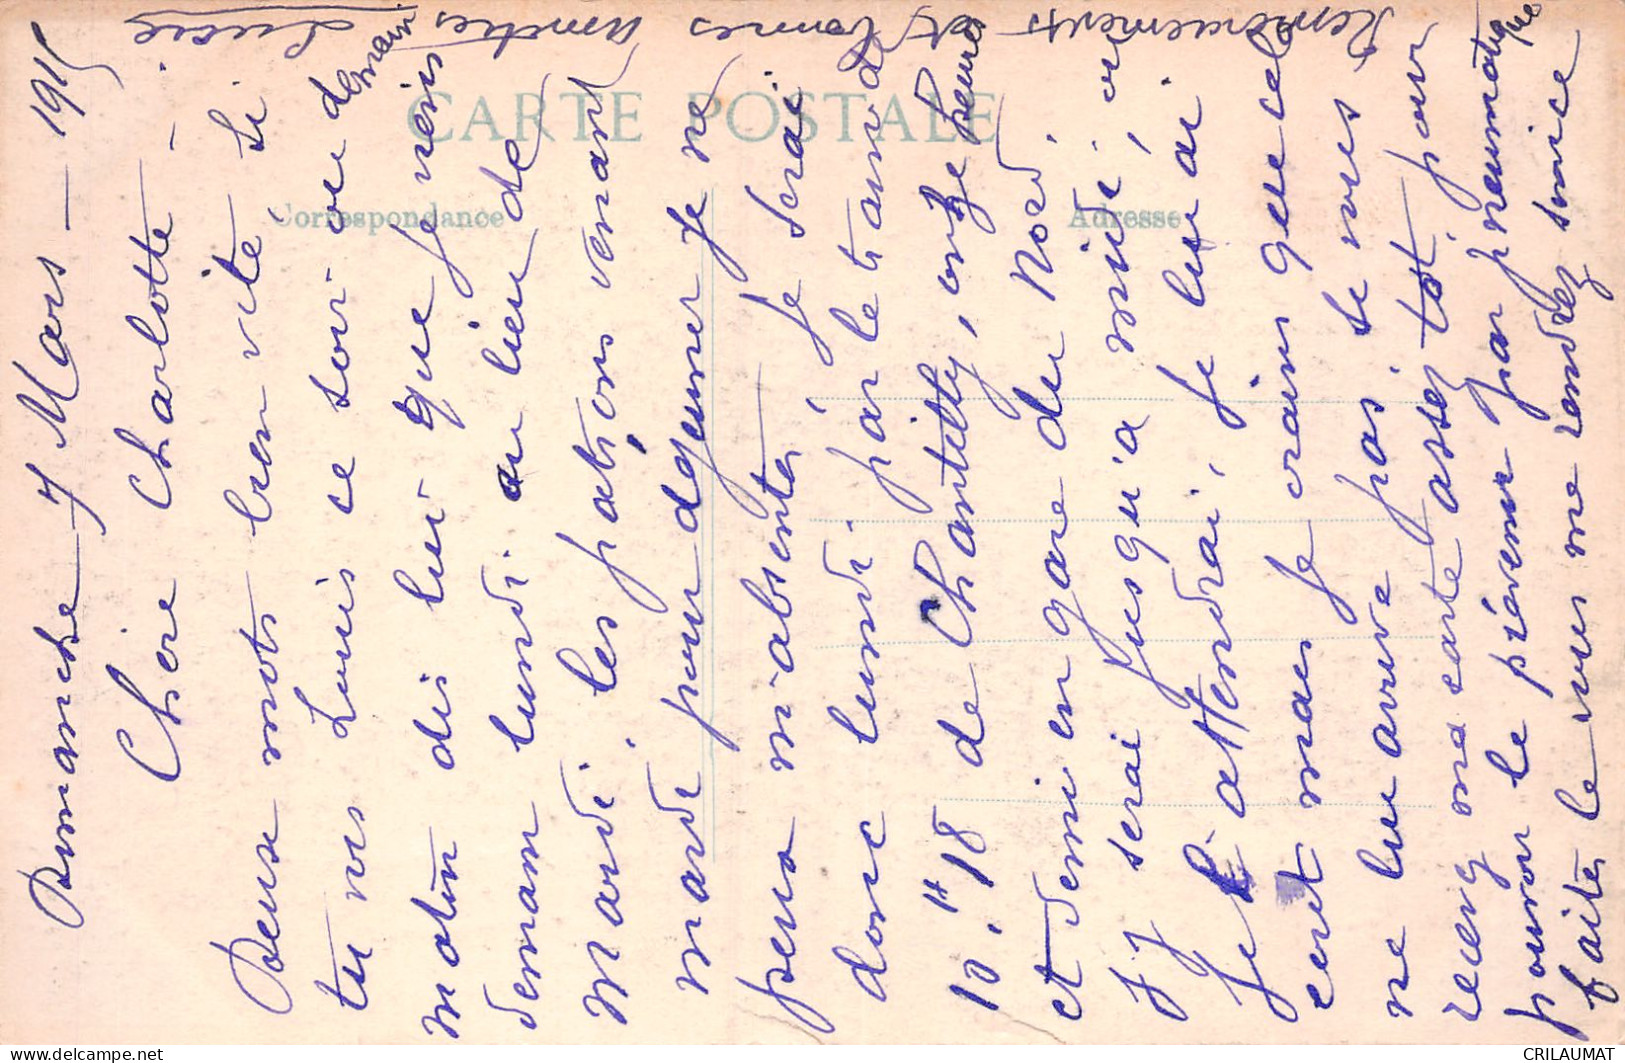 Dimanche 7 Mars – 1915
Chère Charlotte –
Deux mots bien vite si
tu vois Louis ce soir ou demain
matin dis lui que je viens
demain lundi au lieu de
Mardi. les patrons venant
mardi pour dejeuner je ne
peux m'absenter, je serai
donc lundi par le train de
10.H 18 de Chantilly, onze heure
et demi en gare du Nord,
j'y serai jusqu'a midi, ou
je l'attendrai, je lui ai
ecrit mais je crains que cela
ne lui arrive pas. Si vous
recevez ma carte assez tot pour
pouvoir le prévenir par pneumatique
faites le vous me rendrez service
Remerciements et bonnes amitiés
Lucie
CARTE POSTALE
Correspondance
Adresse
CRILAUMAT